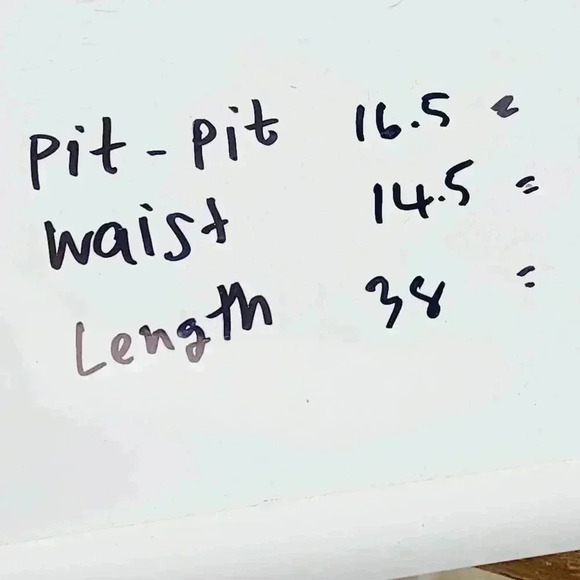 pit - pit 16.5 "
waist 14.5 "
Length 38 "